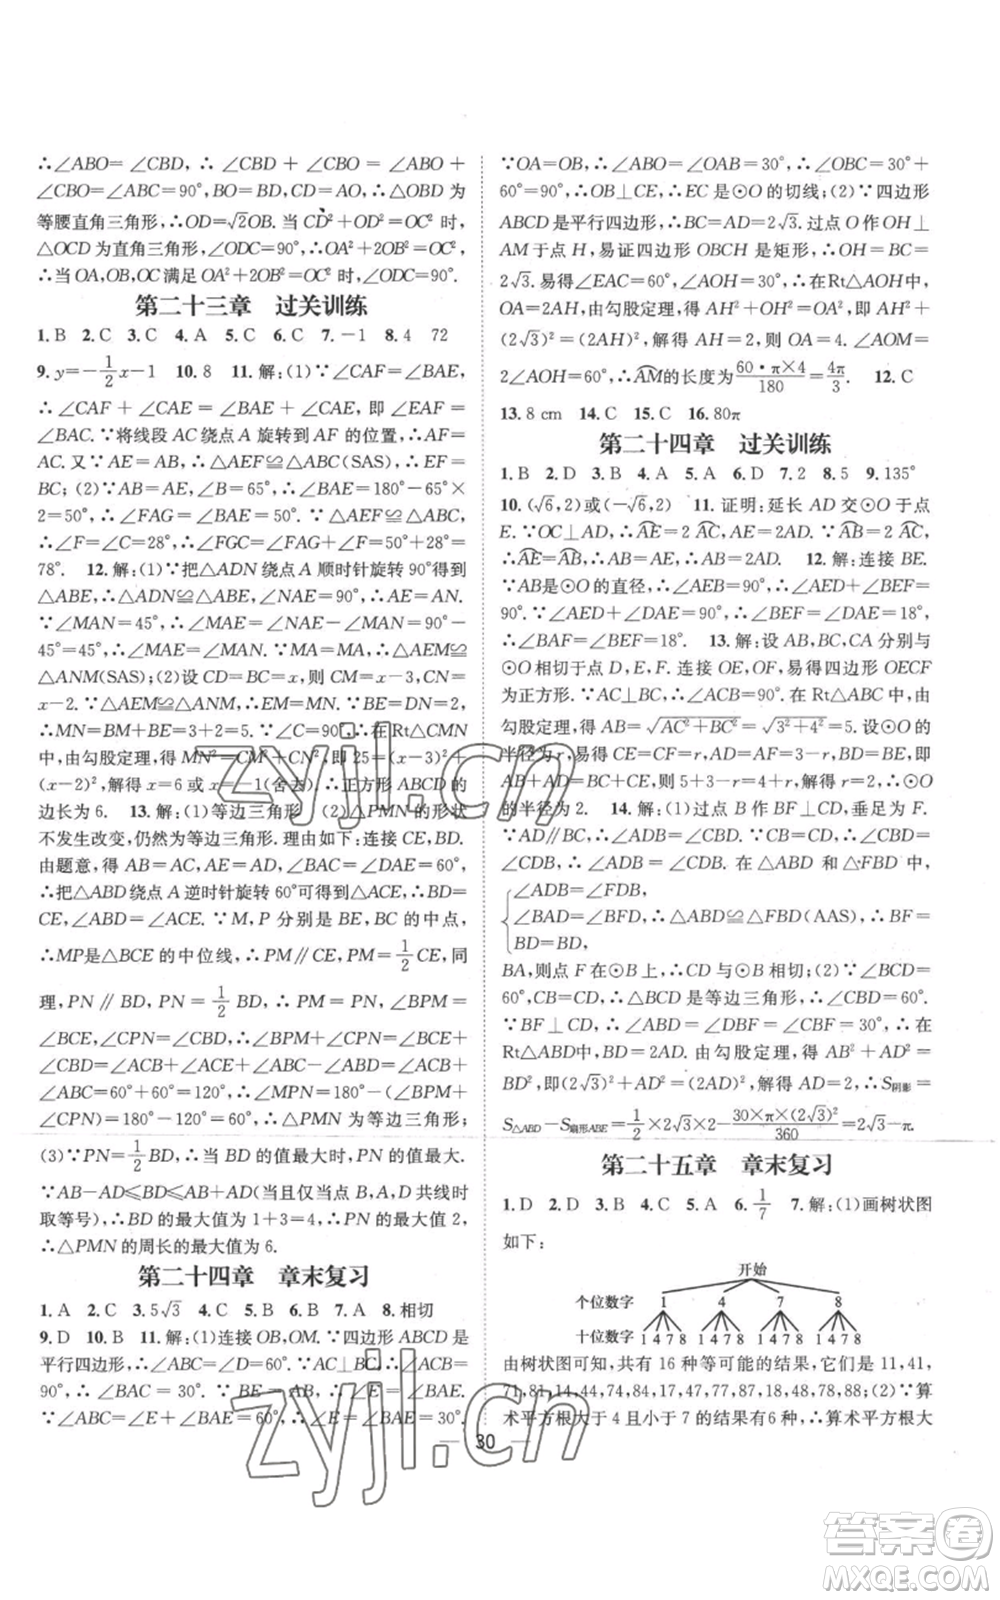 ∴∠ABO=∠CBD,∴∠CBD+∠CBO=∠ABO+
∠CBO=∠ABC=90°,BO=BD,CD=AO,∴△OBD 为
等腰直角三角形,∴OD=√2OB.当 CD²+OD²=OC² 时,
△OCD 为直角三角形,∠ODC=90°,∴OA²+2OB²=OC²,
∴当 OA,OB,OC 满足 OA²+2OB²=OC² 时,∠ODC=90°.
第二十三章 过关训练
1.B 2.C 3.C 4.A 5.C 6.C 7.-1 8.4 72
9.y=-1/2x-1 10.8 11.解:(1)∵∠CAF=∠BAE,
∴∠CAF+∠CAE=∠BAE+∠CAE,即∠EAF=
∠BAC.∵将线段 AC 绕点 A 旋转到 AF 的位置,∴AF=
AC.又∵AE=AB,∴△AEF≌△ABC(SAS),∴EF=
BC;(2)∵AB=AE,∠B=65°,∴∠BAE=180°-65°×
2=50°,∴∠FAG=∠BAE=50°.∵△AEF≌△ABC,
∴∠F=∠C=28°,∴∠FGC=∠FAG+∠F=50°+28°=
78°. 12.解:(1)∵把△ADN 绕点 A 顺时针旋转 90°得到
△ABE,∴△ADN≌△ABE,∠NAE=90°,∴AE=AN.
∵∠MAN=45°,∴∠MAE=∠NAE-∠MAN=90°-
45°=45°,∴∠MAE=∠MAN.∵MA=MA,∴△AEM≌
△ANM(SAS);(2)设 CD=BC=x,则 CM=x-3,CN=
x-2.∵△AEM≌△ANM,∴EM=MN.∵BE=DN=2,
∴MN=BM+BE=3+2=5.∵∠C=90°,∴在Rt△CMN
中,由勾股定理,得 MN²=CM²+CN²,即 25=(x-3)²+
(x-2)²,解得 x=6 或 x=-1(舍去).∴正方形 ABCD 的
边长为 6. 13.解:(1)等边三角形 (2)△PMN 的形状
不发生改变,仍然为等边三角形.理由如下:连接 CE,BD.
由题意,得 AB=AC,AE=AD,∠BAC=∠DAE=60°,
∴把△ABD 绕点 A 逆时针旋转 60°可得到△ACE,∴BD=
CE,∠ABD=∠ACE.∵M,P 分别是 BE,BC 的中点,
∴MP是△BCE 的中位线,∴PM∥CE,PM=1/2CE,同
理,PN∥BD,PN=1/2BD,∴PM=PN,∠BPM=
∠BCE,∠CPN=∠CBD,∴∠BPM+∠CPN=∠BCE+
∠CBD=∠ACB+∠ACE+∠CBD=∠ACB+∠ABD+
∠ABC=60°+60°=120°,∴∠MPN=180°-(∠BPM+
∠CPN)=180°-120°=60°,∴△PMN 为等边三角形;
(3)∵PN=1/2BD,∴当 BD 的值最大时,PN 的值最大.
∵AB-AD≤BD≤AB+AD(当且仅当点 A,B,D 共线时
取等号),∴BD 的最大值为 1+3=4,∴PN 的最大值为 2,
∴△PMN 的周长的最大值为 6.
第二十四章 章末复习
1.A 2.C 3.5√3 4.C 5.B 6.B 7.A 8.相切
9.D 10.B 11.解:(1)连接 OB,OM.∵四边形 ABCD 是
平行四边形,∴∠ABC=∠D=60°.∵AC⊥BC,∴∠ACB=
90°,∴∠BAC=30°.∵BE=AB,∴∠E=∠BAE.
∵∠ABC=∠E+∠BAE=60°,∴∠E=∠BAE=30°.
∵OA=OB,∴∠ABO=∠OAB=30°,∴∠OBC=30°+
60°=90°,∴OB⊥CE,∴EC 是⊙O 的切线;(2)∵四边形
ABCD 是平行四边形,∴BC=AD=2√3.过点 O 作 OH⊥
AM 于点 H,易证四边形 OBCH 是矩形,∴OH=BC=
2√3.易得∠EAC=60°,∠OHA=90°,∴∠AOH=30°,∴
OA=2AH,由勾股定理,得 AH²+OH²=OA²,即 AH²+
(2√3)²=(2AH)².解得 AH=2,则 OA=4.∴∠AOM=
2∠AOH=60°,∴AM的长度为60·π×4/180=4π/3. 12.C
13.8 cm 14.C 15.C 16.80π
第二十四章 过关训练
1.B 2.D 3.B 4.A 5.A 6.D 7.2 8.5 9.135°
10.(√6,2)或(-√6,2) 11.证明:延长 AD 交⊙O 于点
E.∵OC⊥AD,∴AE=2AC,AE=2AD.∵AB=2AC,
∴AE=AB,∴AB=AE,∴AB=2AD. 12.解:连接 BE.
∵AB是⊙O 的直径,∴∠AEB=90°,∴∠AED+∠BEF=
90°.∵∠AED+∠DAE=90°,∴∠BEF=∠DAE=18°,
∴∠BAF=∠BEF=18°. 13.解:设 AB,BC,CA 分别与
⊙O 切于点 D,E,F.连接 OE,OF,易得四边形 OECF
为正方形.∵AC⊥BC,∴∠C=90°.在 Rt△ABC 中,由
勾股定理,得 AB=√AC²+BC²=√3²+4²=5.设⊙O 的
半径为 r,易得 CE=CF=r.∵AF=AD,BE=BD,即
AF+BE=AD+BD=AB,则 5+3-r=4+r,∴⊙O
的半径为 2. 14.解:(1)过点 B 作 BF⊥CD,垂足为 F.
∵AD∥BC,∴∠ADB=∠CBD.∵CB=CD,∴∠CBD=
∠CDB,∴∠ADB=∠CDB.在△ABD 和△FBD 中,
∠ADB=∠FDB,
∠BAD=∠BFD,∴△ABD≌△FBD(AAS),∴BF=
BD=BD,
BA,则点 F 在⊙B 上,∴CD 与⊙B 相切;(2)∵∠BCD=
60°,CB=CD,∴△BCD 是等边三角形,∴∠CBD=60°.
∵BF⊥CD,∴∠ABD=∠DBF=∠CBF=30°,∴在
Rt△ABD中,BD=2AD.由勾股定理,得 AB²+AD²=
BD²,即(2√3)²+AD²=(2AD)²,解得 AD=2,∴S阴影=
S△ABD-S扇形ABE=1/2×2√3×2-30×π×(2√3)²/360=2√3-π.
第二十五章 章末复习
1.D 2.D 3.B 4.C 5.A 6.1/7 7.解:(1)画树状图
如下:
开始
个位数字 1 4 7 8
十位数字 1 4 7 8 1 4 7 8 1 4 7 8 1 4 7 8
由树状图可知,共有 16 种等可能的结果,它们是 11,41,
71,81,14,44,74,84,17,47,77,87,18,48,78,88;(2)∵算
术平方根大于 4 且小于 7 的结果有6 种,∴算术平方根大
30
zyjl.cn
zyjl.cn
答案圈
MXQE.COM